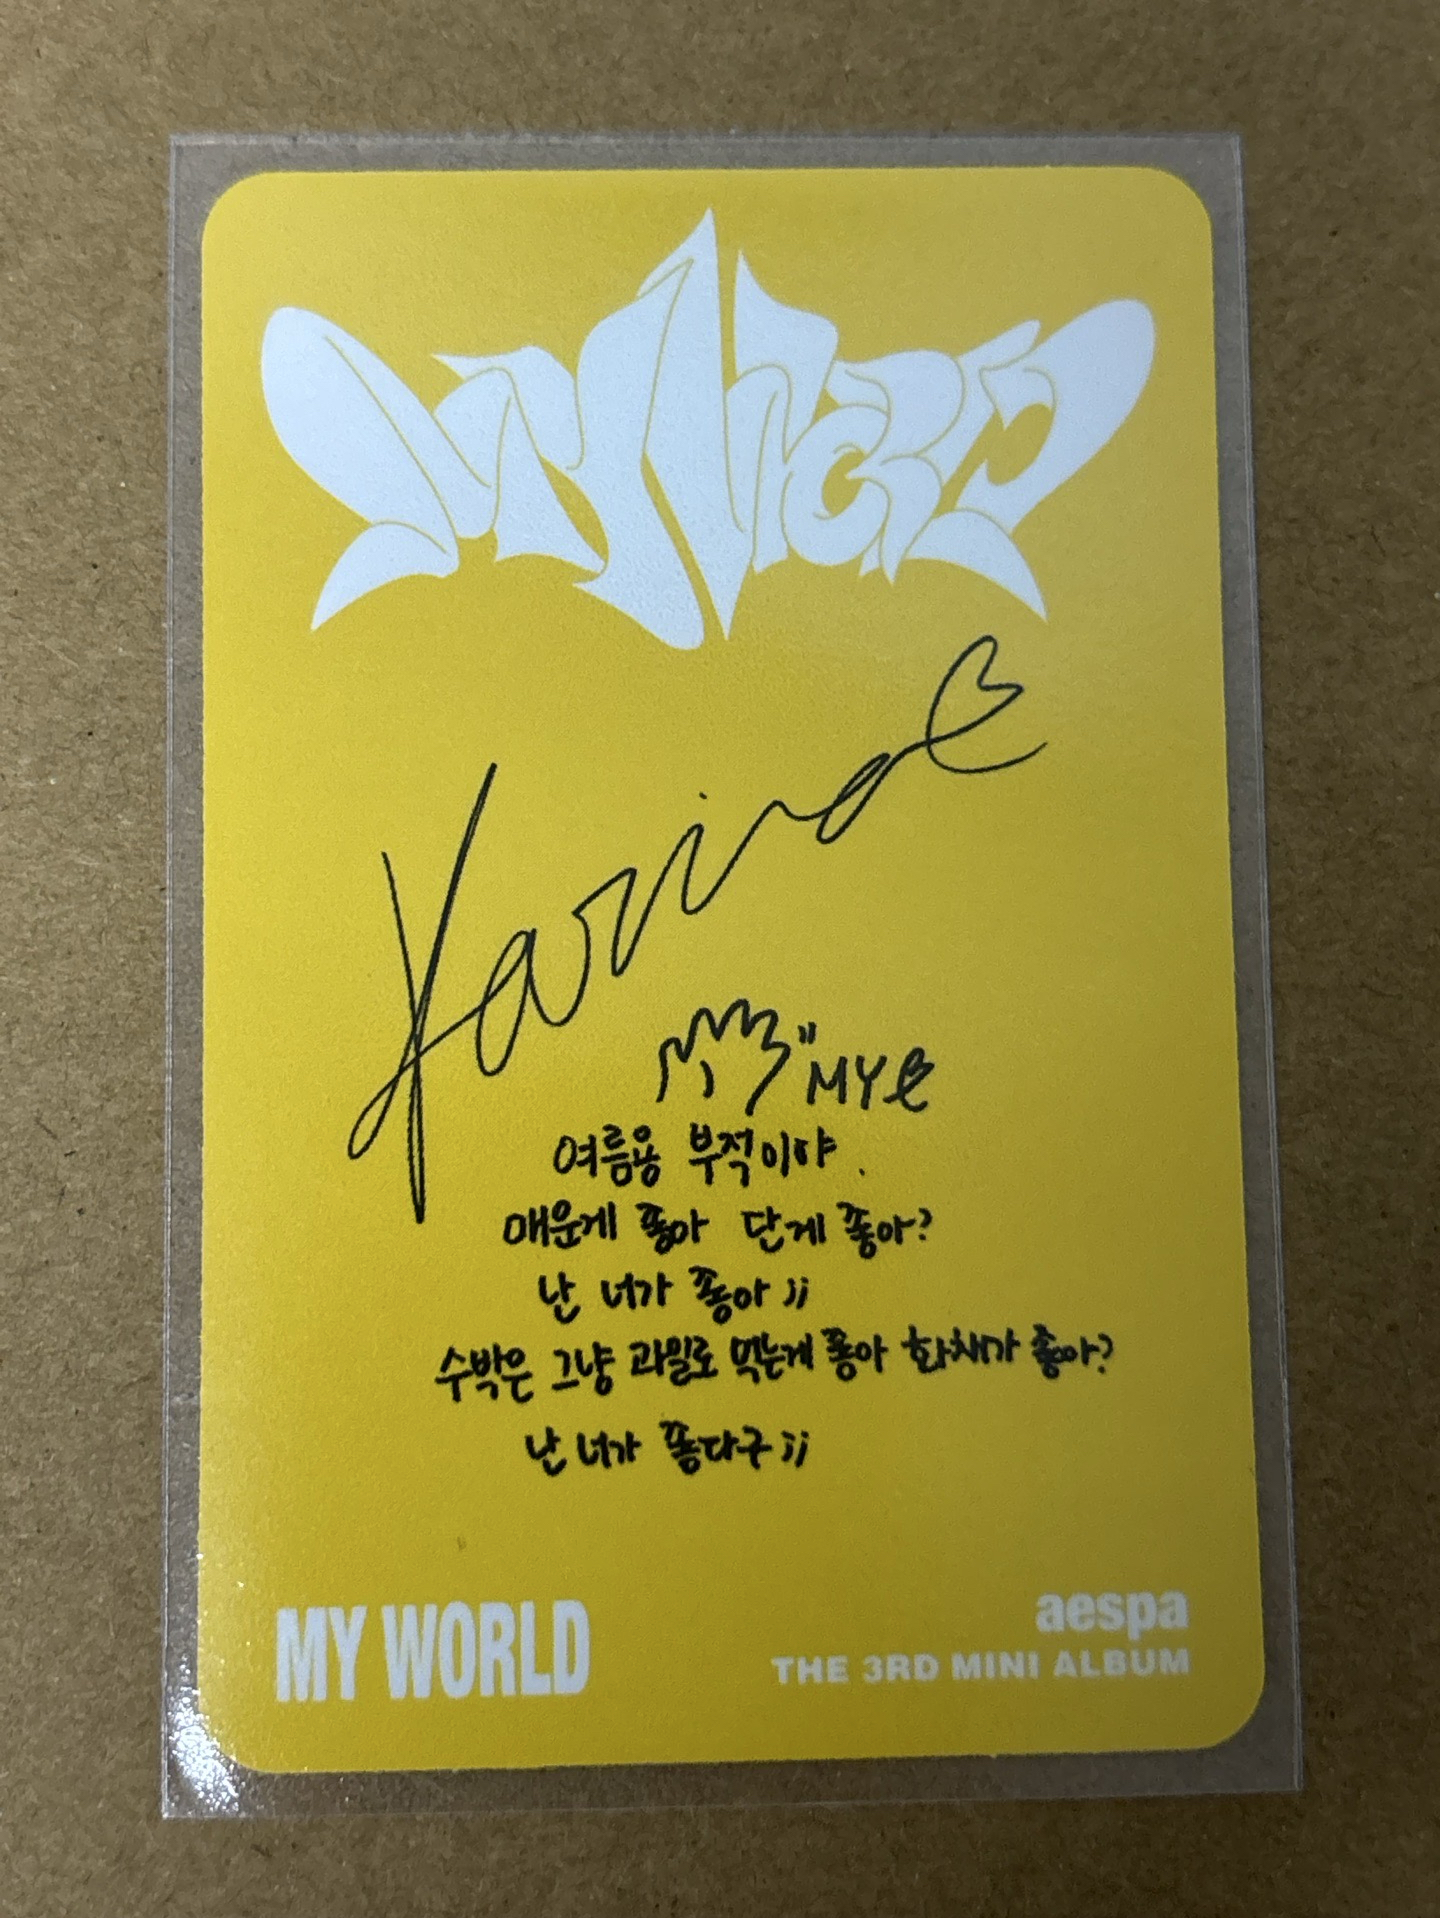 MY WORLD
Karina
"MY
여름용 부적이야.
매운게 좋아 단게 좋아?
난 너가 좋아ii
수박은 그냥 과일로 먹는게 좋아 화채가 좋아?
난 너가 좋다구ii
MY WORLD
aespa
THE 3RD MINI ALBUM